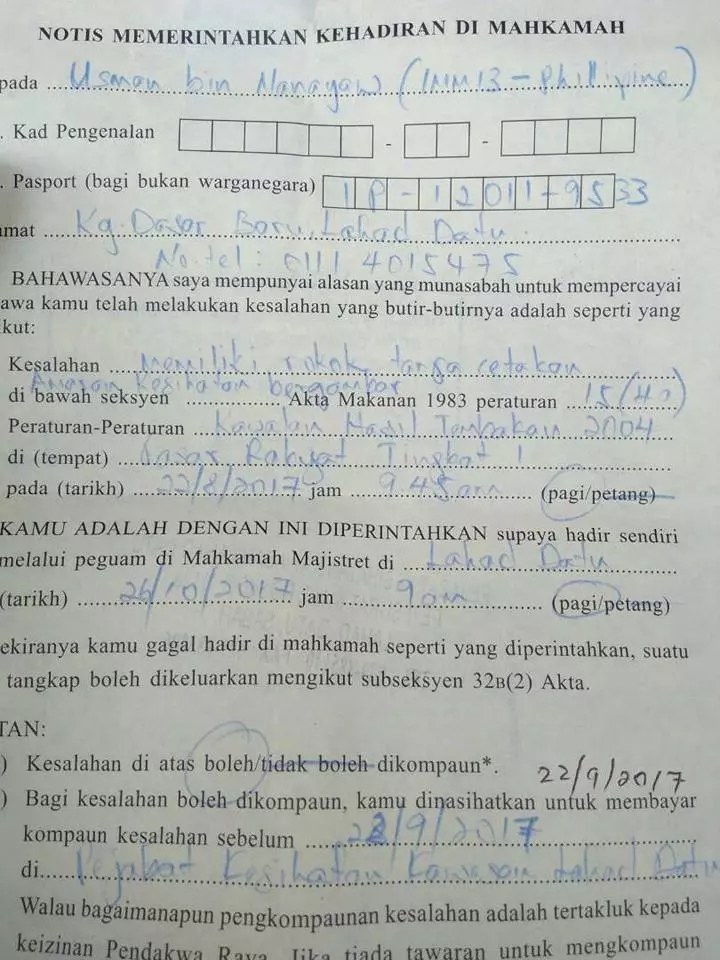 NOTIS MEMERINTAHKAN KEHADIRAN DI MAHKAMAH
pada Usman bin Manayaw (IMM13 - Phillipine)
. Kad Pengenalan - -
. Pasport (bagi bukan warganegara) IP-12011-9533
mat Kg. Dasar Baru, Lahad Datu
No. tel : 0111 4015475
BAHAWASANYA saya mempunyai alasan yang munasabah untuk mempercayai
awa kamu telah melakukan kesalahan yang butir-butirnya adalah seperti yang
kut:
Kesalahan memiliki rokok tanpa cetakan
Amaran Kesihatan bergambar
di bawah seksyen Akta Makanan 1983 peraturan 15(4)
Peraturan-Peraturan Kawalan Hasil Tembakau 2004
di (tempat) Pasar Rakyat Tingkat 1
pada (tarikh) 22/8/2017 jam 9.45am (pagi/petang)
KAMU ADALAH DENGAN INI DIPERINTAHKAN supaya hadir sendiri
melalui peguam di Mahkamah Majistret di Lahad Datu
(tarikh) 26/10/2017 jam 9am (pagi/petang)
ekiranya kamu gagal hadir di mahkamah seperti yang diperintahkan, suatu
tangkap boleh dikeluarkan mengikut subseksyen 32B(2) Akta.
TAN:
) Kesalahan di atas boleh/tidak boleh dikompaun*.
22/9/2017
) Bagi kesalahan boleh dikompaun, kamu dinasihatkan untuk membayar
kompaun kesalahan sebelum 22/9/2017
di Pejabat Kesihatan Kawasan Lahad Datu
Walau bagaimanapun pengkompaunan kesalahan adalah tertakluk kepada
keizinan Pendakwa Raya. Jika tiada tawaran untuk mengkompaun